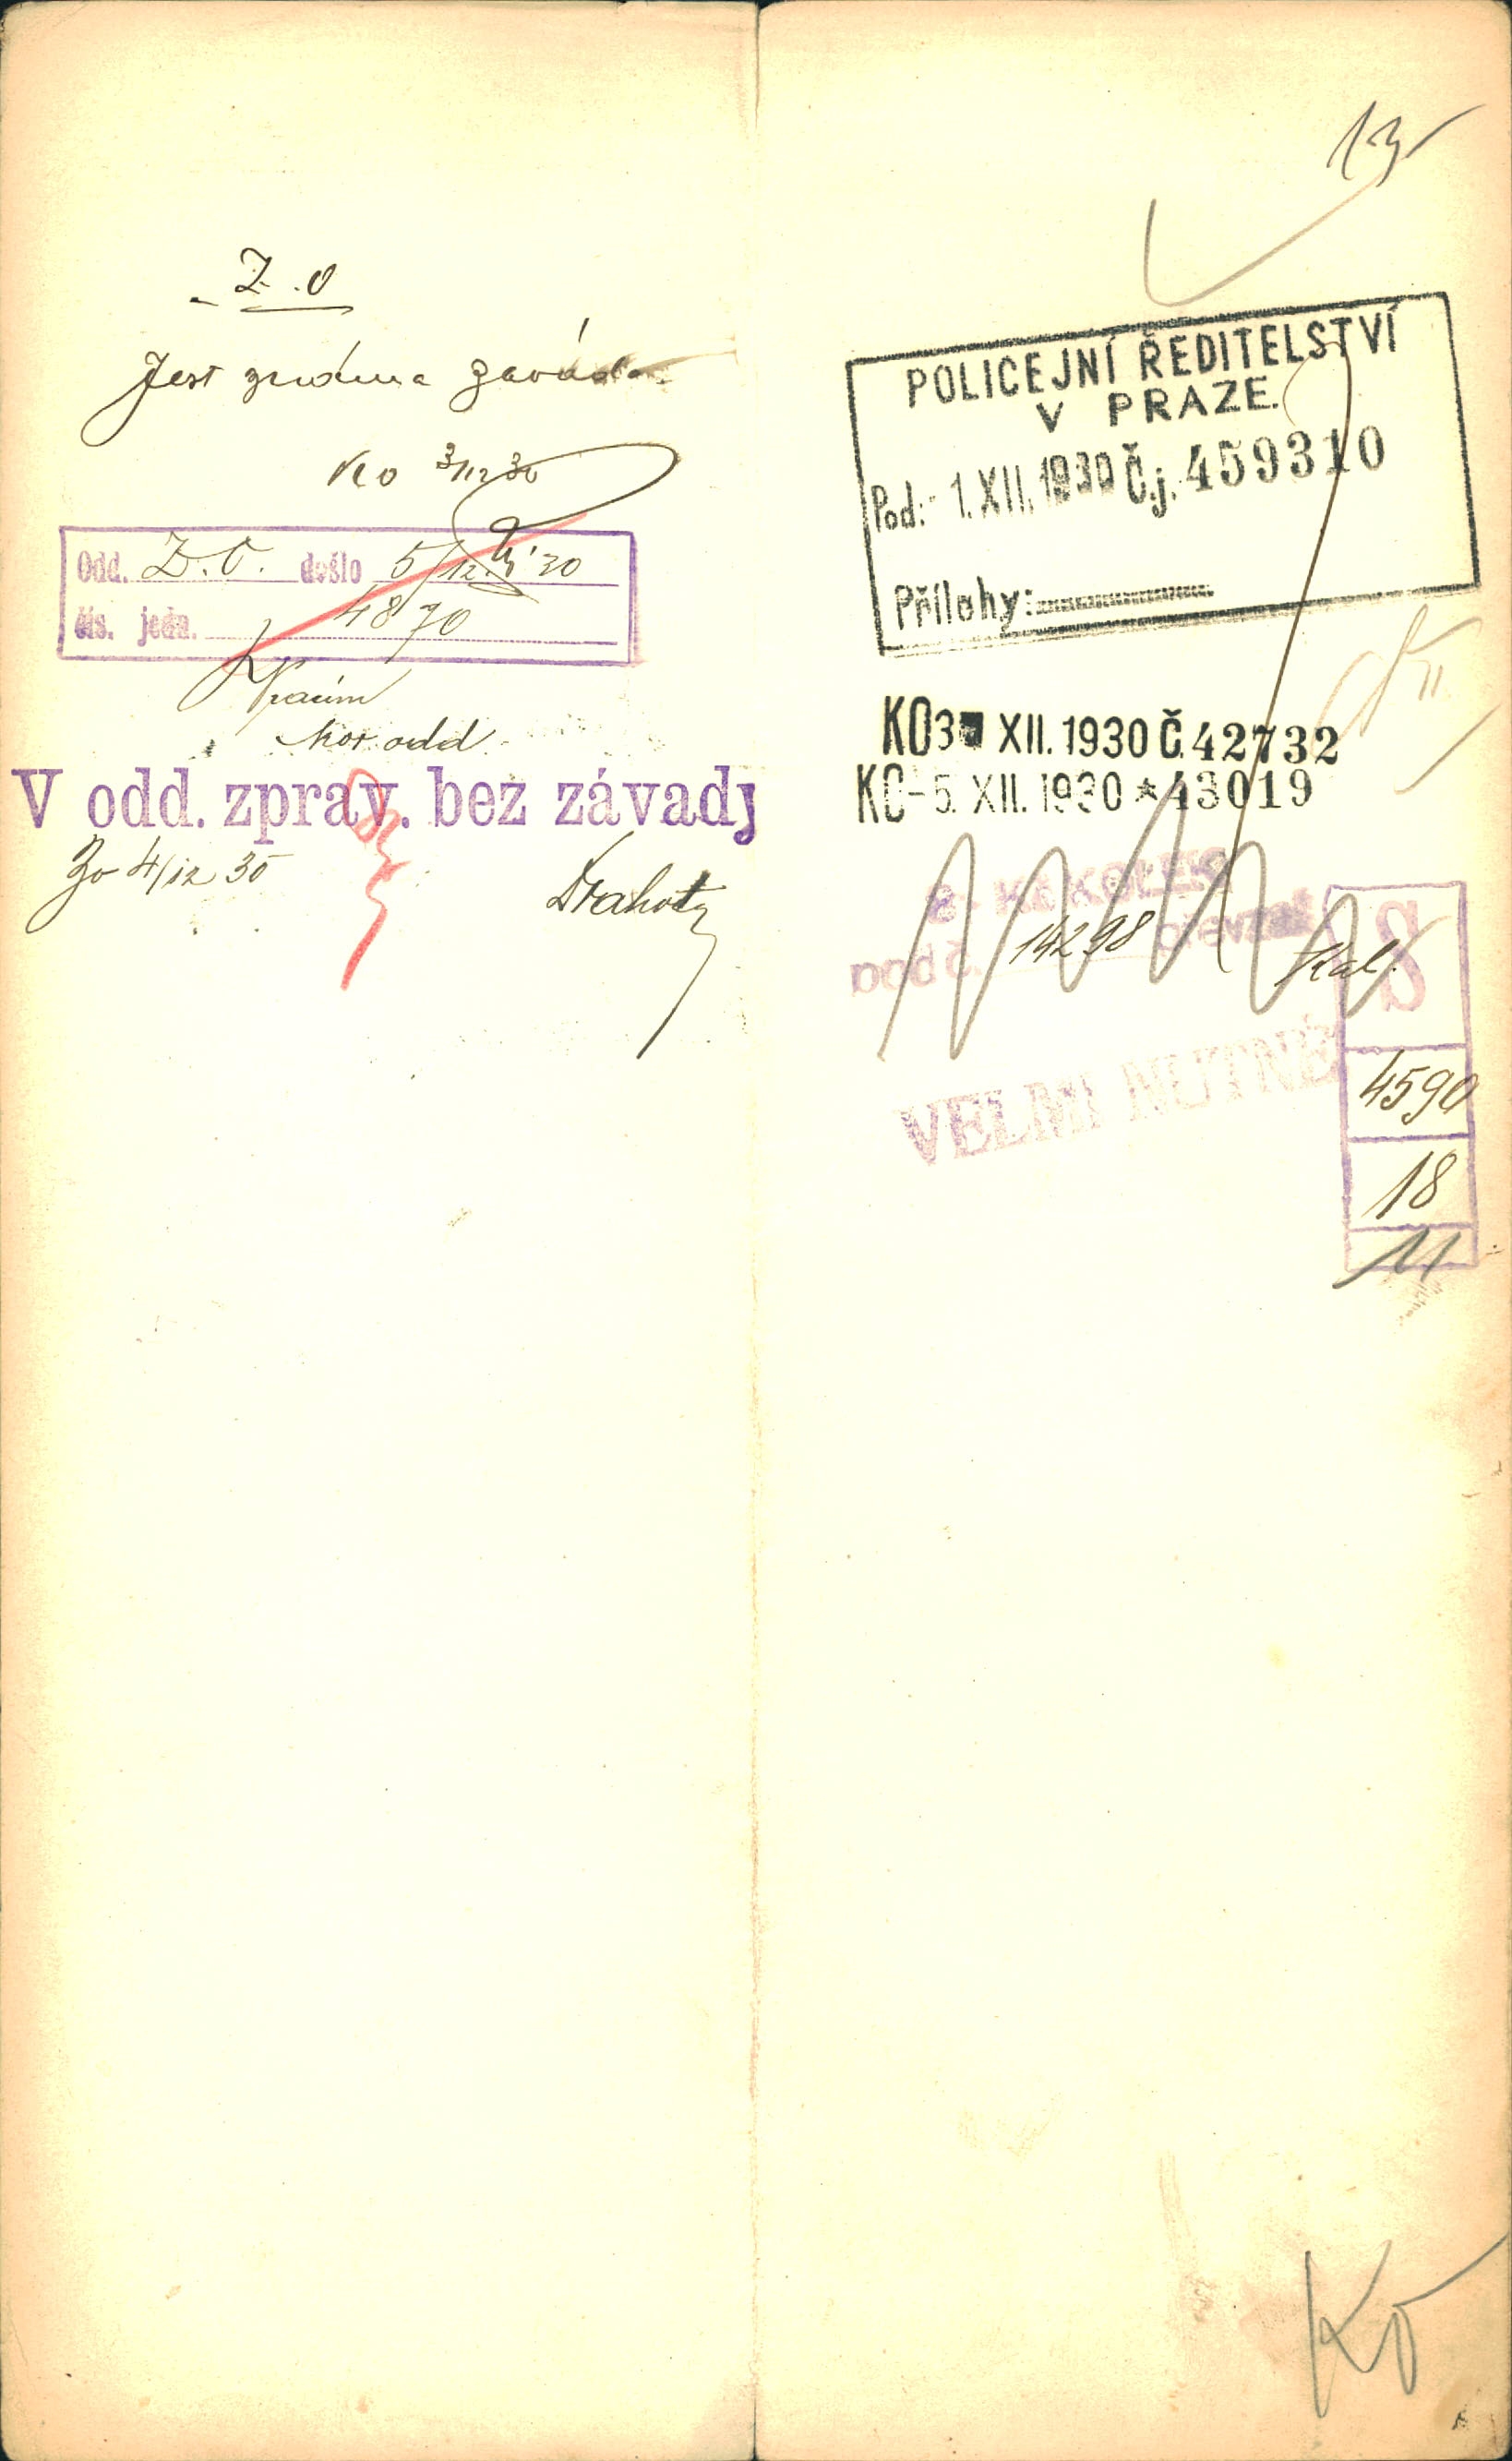 Z. O
Jest známa závada
KO 3/12 30
Odd. Z. O. došlo 5/12 30
čís. jedn. 4870
Vracím
kor odd
V odd. zprav. bez závady
Zo 4/12 30
Drahota
13
POLICEJNÍ ŘEDITELSTVÍ
V PRAZE.
Pod: -1. XII. 1930 Č.j. 459310
Přílohy:
KO 3 XII. 1930 Č 42732
KO - 5. XII. 1930 * 43019
pod č. 14298 Kal.
8
VELMI NUTNÉ
4590
18
11
KO